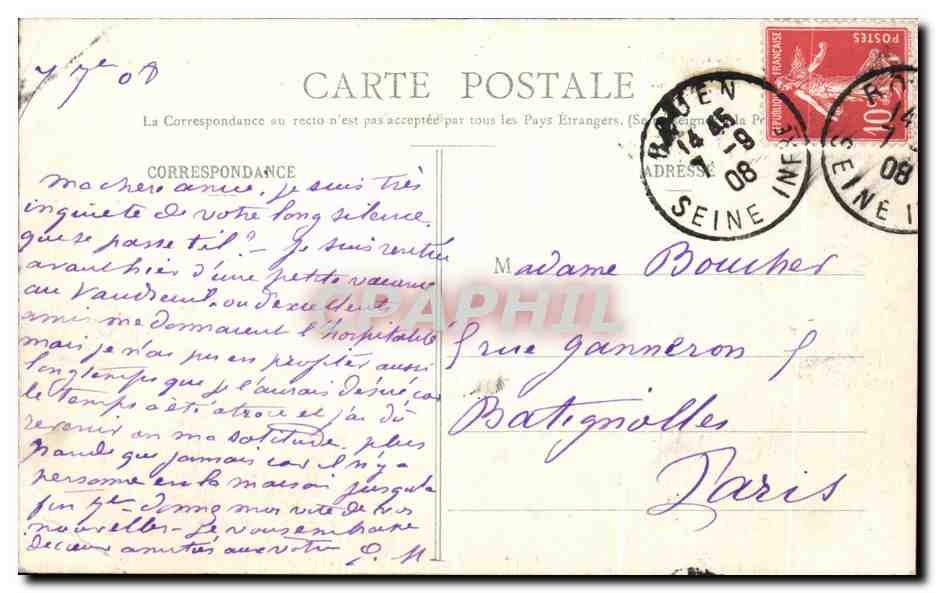 7 7e 08
CARTE POSTALE
La Correspondance au recto n'est pas acceptée par tous les Pays Étrangers. (Se renseigner à la P
CORRESPONDANCE
ADRESSE
RÉPUBLIQUE FRANÇAISE
POSTES
10
ROUEN
14 45
7 - 9
08
SEINE INFRE
RO
14
7
08
SEINE I
ma chère amie, je suis très
inquiète de votre long silence
que se passe t'il? - je suis rentrée
avant hier d'une petite vacance
au Vaudreuil, où d'excellents
amis me donnaient l'hospitalité
mais je n'ai pu en profiter aussi
longtemps que je l'aurais désiré car
le temps a été atroce et j'ai dû
revenir en ma solitude. plus
grande que jamais car il n'y a
personne en la maison jusqu'à
fin 7e - donnez moi vite de vos
nouvelles - Je vous embrasse
de cœur amitiés aux vôtres
Madame Boucher
5 rue Ganneron 5
Batignolles
Paris
CPAPHIL